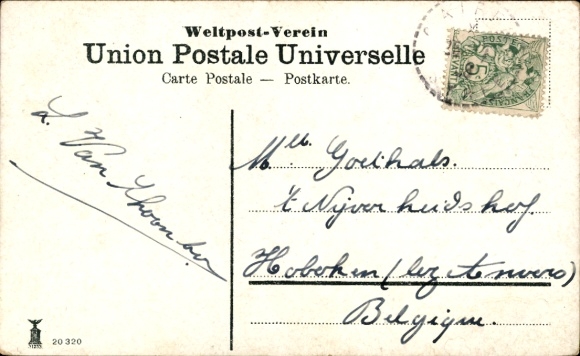 Weltpost-Verein
Union Postale Universelle
Carte Postale — Postkarte.
5
a. Van
Mlle Goethals.
't Nijverheidshof.
Hoboken (lez Anvers)
Belgique.
20 320